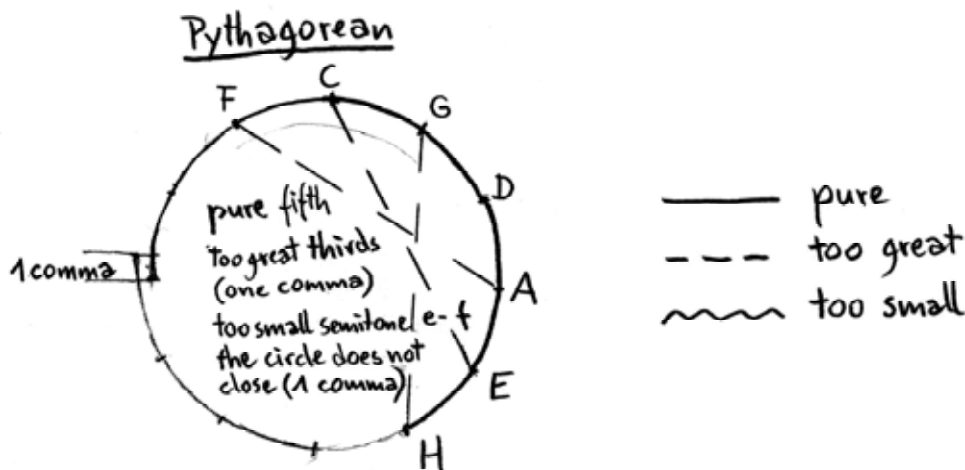 Pythagorean
C
F
G
D
pure fifth
too great thirds
(one comma)
too small semitone e-f
the circle does not
close (1 comma)
1 comma
A
E
H
pure
too great
too small